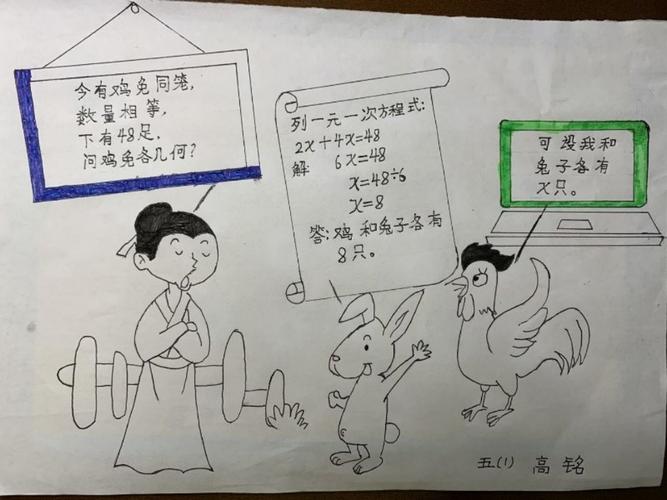 今有鸡兔同笼,
数量相等,
下有48足,
问鸡兔各几何?
列一元一次方程式:
2x+4x=48
解 6x=48
x=48÷6
x=8
答:鸡和兔子各有
8只。
可设我和
兔子各有
x只。
五(1) 高铭